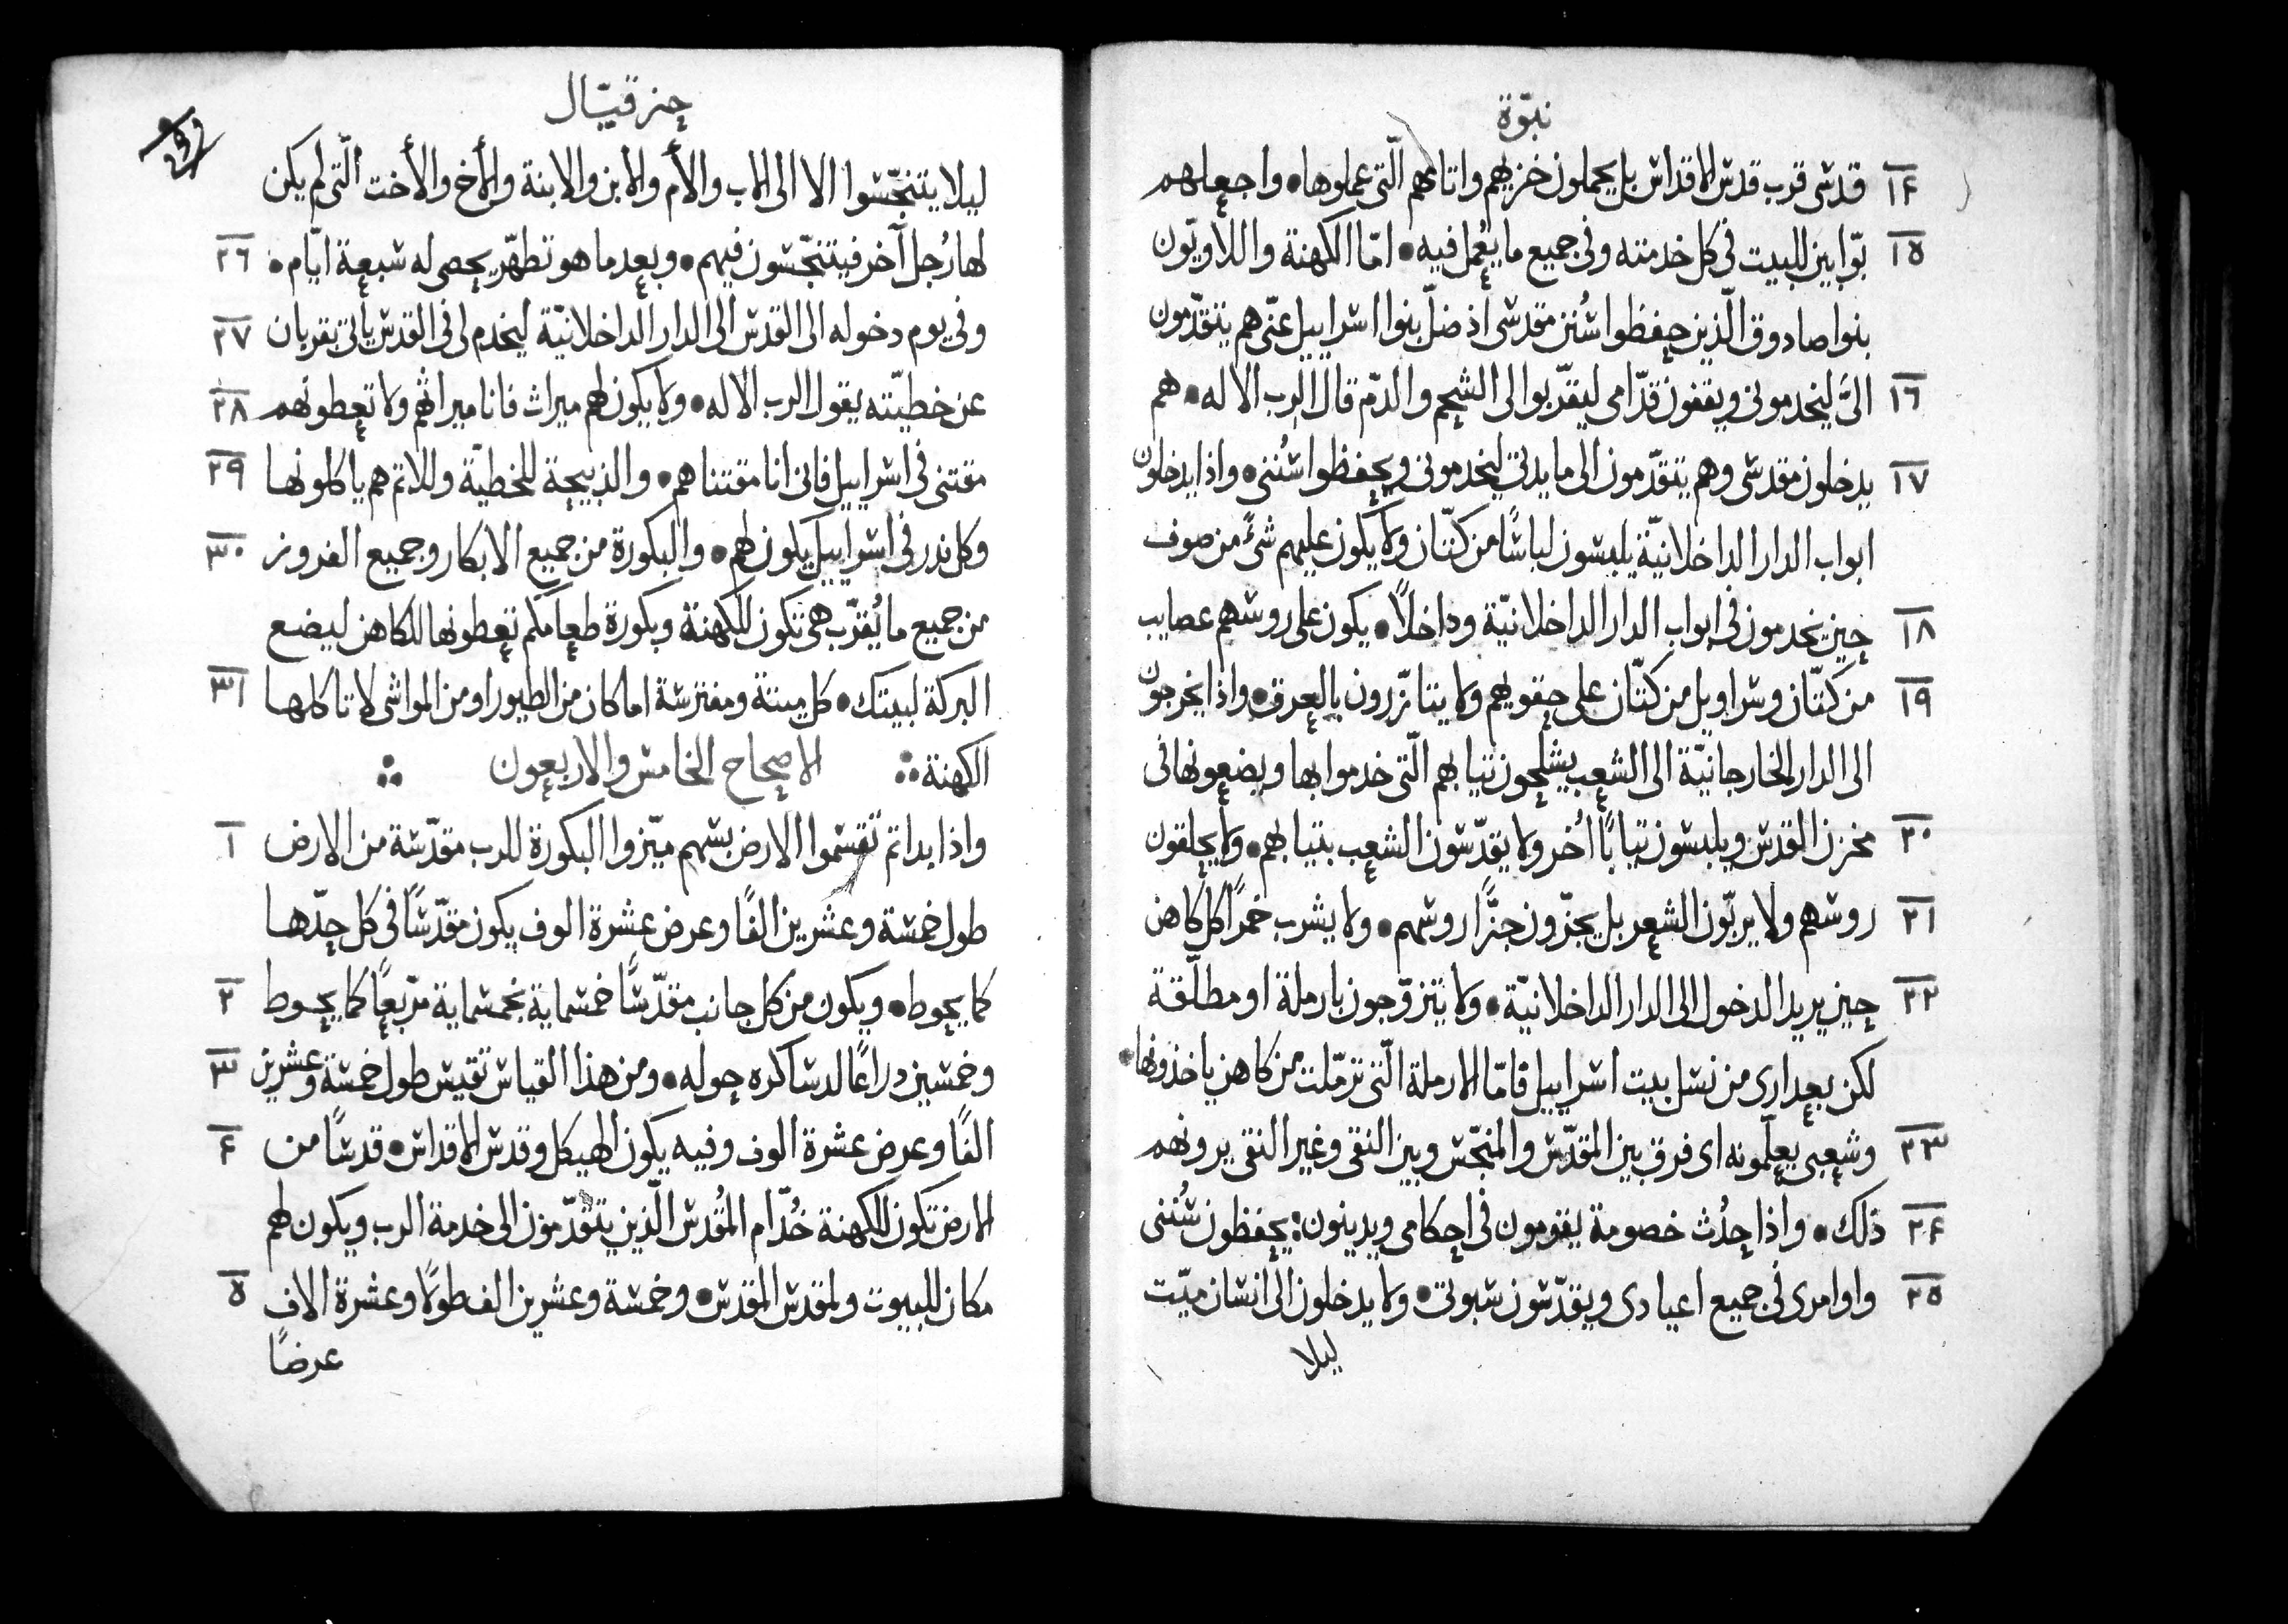 نبوّة
١٤ قدسى قرب قدس الاقداس بل يحملون خزيهم واثامهم الّتى عملوها • واجعلهم
١٥ بوّابين للبيت فى كل خدمته وفى جميع ما يُعمل فيه • امّا الكهنة واللاويّون
بنوا صادوق الّذين حفظوا سُنن مقدسى اذ ضلّ بنوا اسراييل عنّى هم يتقدّمون
١٦ الىَّ ليخدمونى ويقفون قدّامى ليقدّبوا الى الشحم والدّم قال الرب الاله • هم
١٧ يدخلون مقدسى وهم يتقدّمون الى مايدتى ليخدمونى ويحفظوا سُننى • واذا يدخلون
ابواب الدار الداخلانيّة يلبسون لباسًا من كتّان ولا يكون عليهم شىءٌ من صوف
١٨ حين يخدمون فى ابواب الدار الداخلانيّة وداخلاً • يكون على روسهم عصايب
١٩ من كتّان وسراويل من كتّان على حقويهم ولا يتازّرون بالعرق • واذا يخرجون
الى الدار الخارجانيّة الى الشعب يشلحون ثيابهم الّتى خدموا بها ويضعونها فى
٢٠ مخزن القدس ويلبسون ثيابًا اُخر ولا يقدّسون الشعب بثيابهم • ولا يحلقون
٢١ روسهم ولا يربّون الشعر بل يجزّون جزًّا روسهم • ولا يشرب خمرًا كل كاهن
٢٢ حين يريد الدخول الى الدار الداخلانيّة • ولا يتزوّجون بارملة او مطلّقة
لكن بعدارى من نسل بيت اسراييل فامّا الارملة الّتى ترمّلت من كاهن ياخذونها •
٢٣ وشعبى يعلّمونه اى فرق بين المقدّس والمنجّس وبين النقى وغير النقى يرونهم
٢٤ ذلك • واذا حِدُث خصومة يقومون فى احكامى ويدينون : يحفظون سُننى
٢٥ واوامرى فى جميع اعيادى ويقدّسون سبوتى • ولا يدخلون الى انسان ميّت
ليلا
حزقيّال
ليلا يتنجّسوا الا الى الاب والأم والابن والابنة والأخ والأخت الّتى لم يكن
لها رُجل آخر فيتنجّسون فيهم • وبعد ما هو تطهّر يحصى له سبعة ايّام • ٢٦
وفى يوم دخوله الى القدس الى الدار الداخلانيّة ليخدم لى فى القدس ياتى بقربان ٢٧
عن خطيّته يقول الرب الاله • ولا يكون لهم ميراث فانا ميراثهم ولا تعطونهم ٢٨
مقتنى فى اسراييل فانى انا مقتناهم • والذبيحة للخطيّة وللاثم هم ياكلونها ٢٩
وكل ندر فى اسراييل يكون لهم • والبكورة من جميع الابكار وجميع الفروز ٣٠
من جميع ما يُقرّب هى تكون للكهنة وبكورة طعامكم تعطونها للكاهن ليضع
البركة لبيتك • كل ميتة ومفترسة اما كان من الطيور او من المواشى لا تاكلها ٣١
الكهنة ∴ الاصحاح الخامس والاربعون ∴
واذا بداتم تقسموا الارض بسهم ميّزوا البكورة للرب مقدّسة من الارض ١
طول خمسة وعشرين الفًا وعرض عشرة الوف يكون مقدّسًا فى كل حدّها
كما يحوط • ويكون من كل جانب مقدّسًا خمسماية بخمسماية مربّعًا كما يحوط ٢
وخمسين دراعًا لدساكره حوله • ومن هذا القياس تقيس طول خمسة وعشرين ٣
الفًا وعرض عشرة الوف وفيه يكون الهيكل وقدس الاقداس • قدسًا من ٤
الارض تكون للكهنة خُدّام المقدس الّذين يتقدّمون الى خدمة الرب ويكون لهم
مكان للبيوت ولمقدس المقدس • وخمسة وعشرين الف طولاً وعشرة الاف ٥
عرضًا